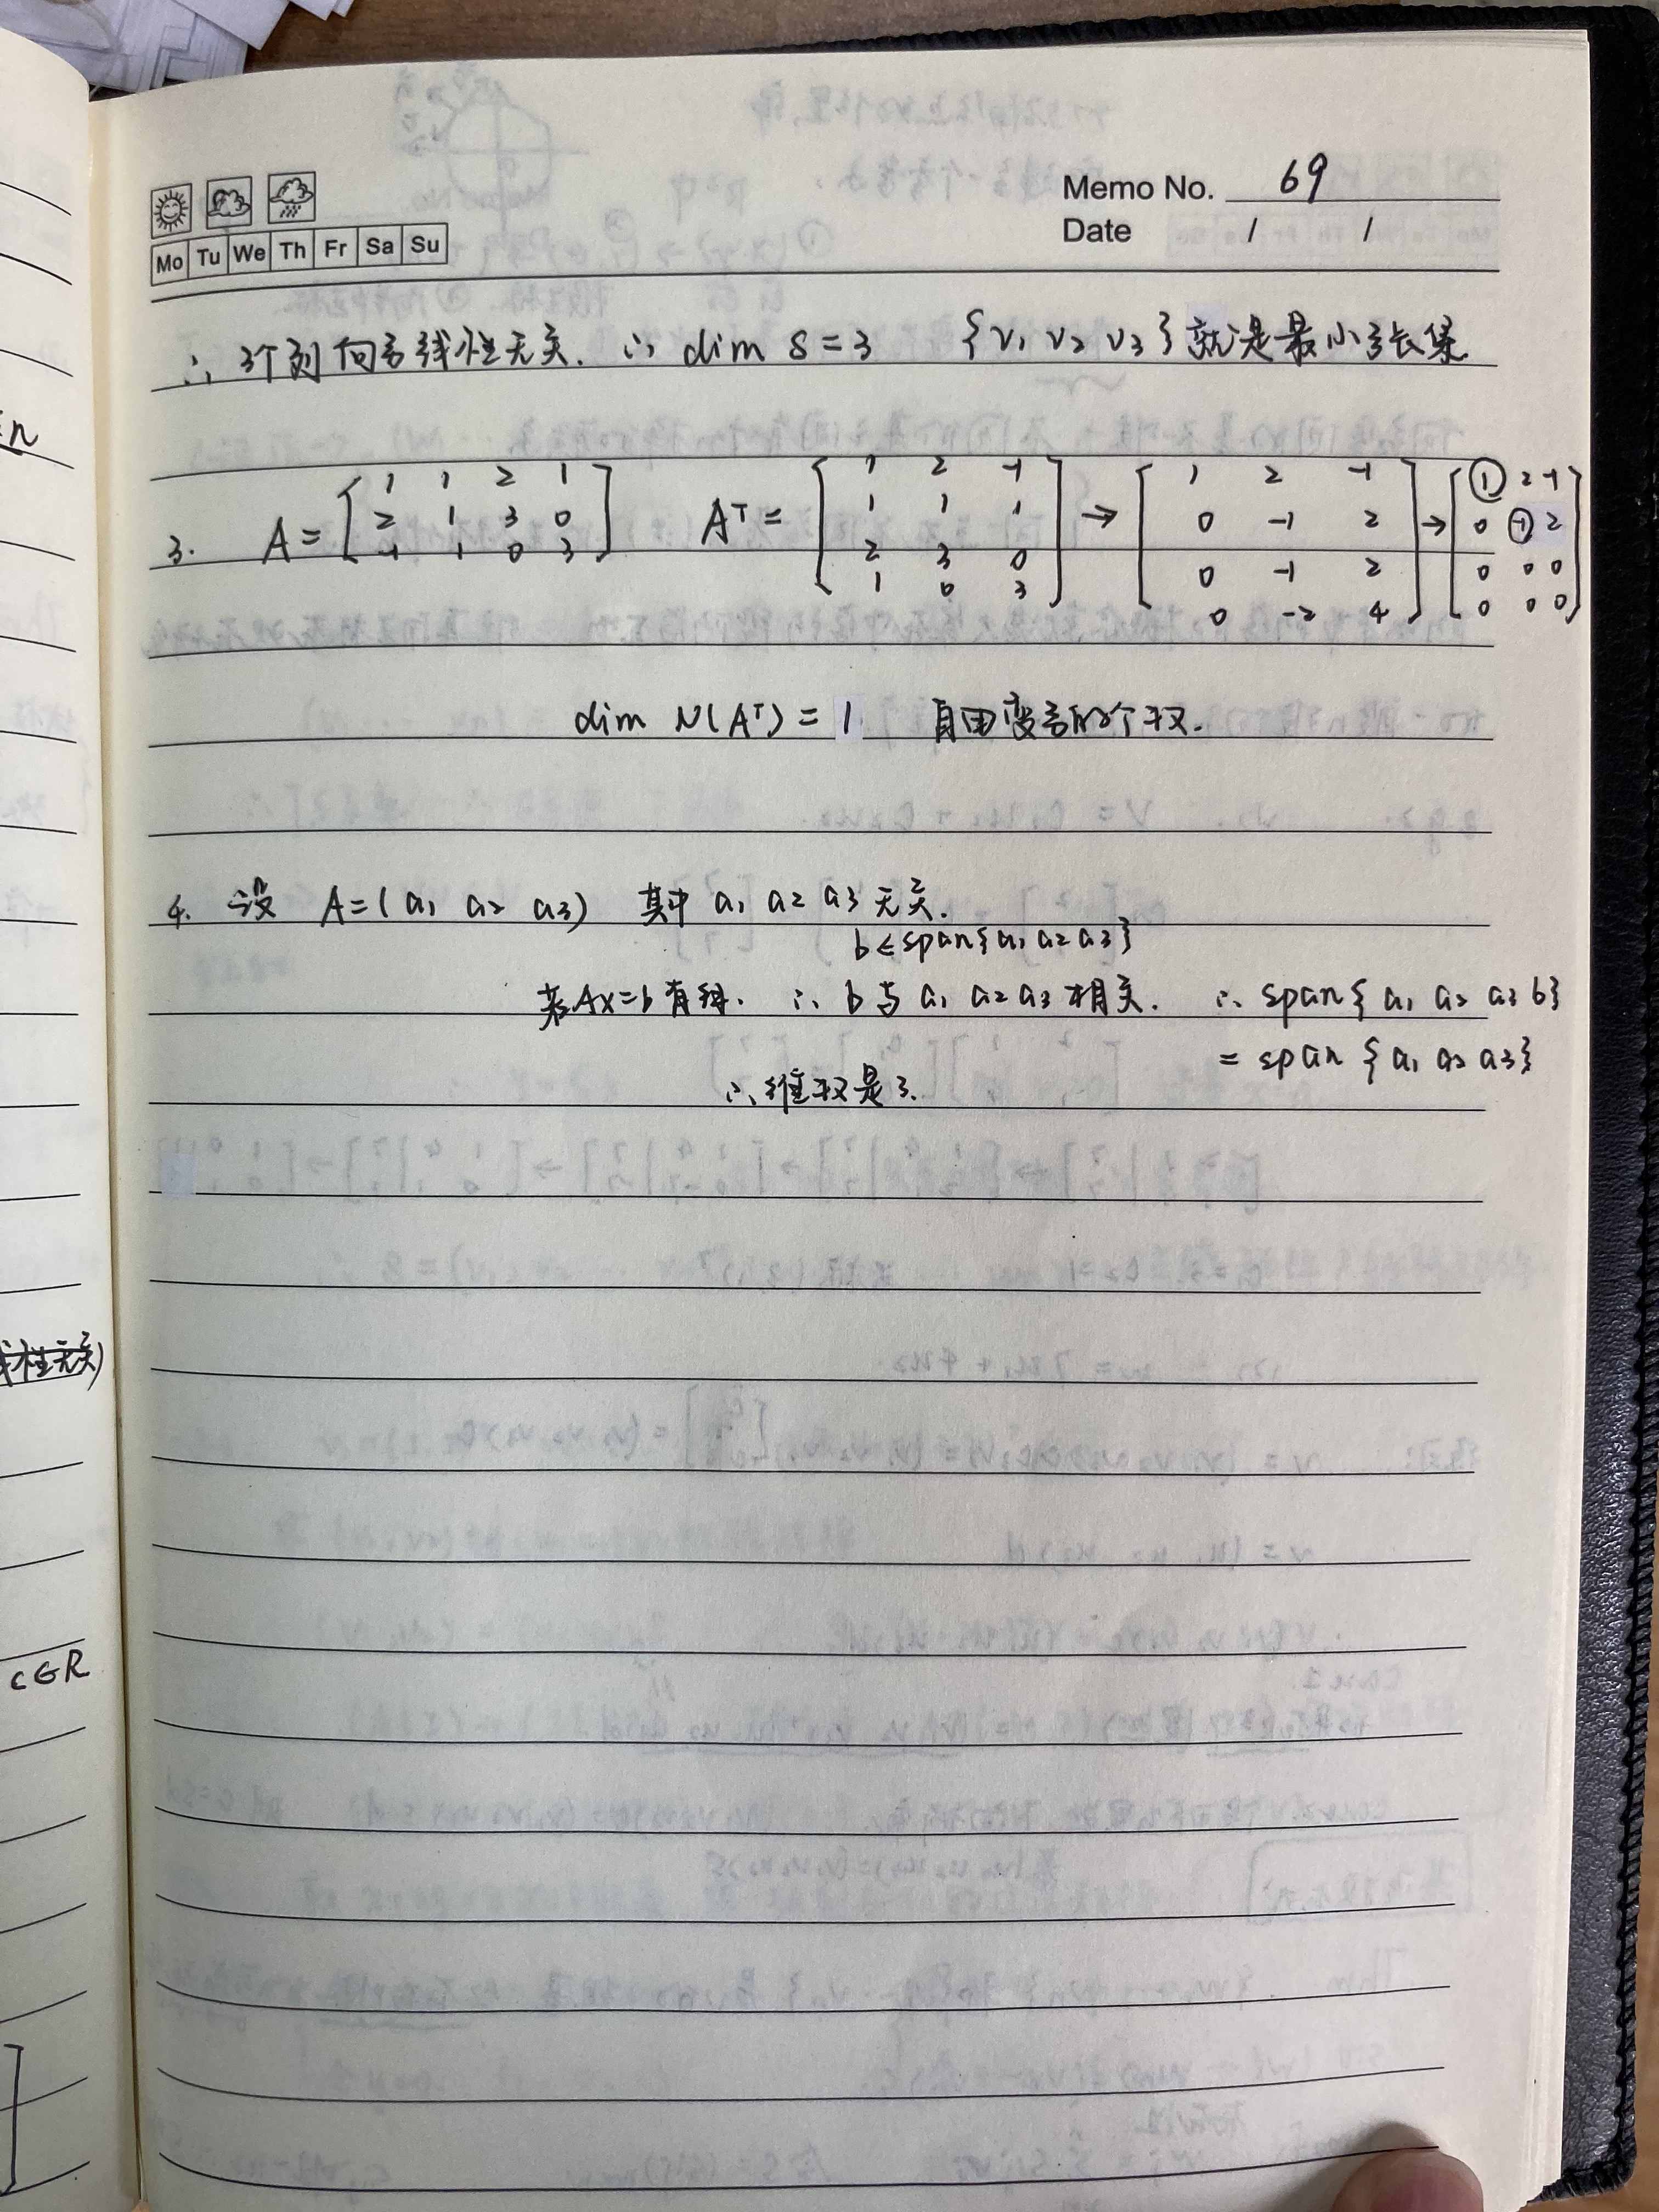 Memo No. 69
Date / /
Mo Tu We Th Fr Sa Su
∴ 3个列向量线性无关. ∴ dim S = 3 {v₁ v₂ v₃} 就是最小张集
3. A = [1 1 2 1; 2 1 3 0; -1 1 0 3] Aᵀ = [1 2 -1; 1 1 1; 2 3 0; 1 0 3] → [1 2 -1; 0 -1 2; 0 -1 2; 0 -2 4] → [1 2 -1; 0 -1 2; 0 0 0; 0 0 0]
dim N(Aᵀ) = 1 自由变量的个数.
4. 设 A = (a₁ a₂ a₃) 其中 a₁ a₂ a₃ 无关.
b ∈ span{a₁ a₂ a₃}
若 Ax=b 有解. ∴ b 与 a₁ a₂ a₃ 相关. ∴ span{a₁ a₂ a₃ b}
= span {a₁ a₂ a₃}
∴ 维数是3.
n
线性无关)
C∈R